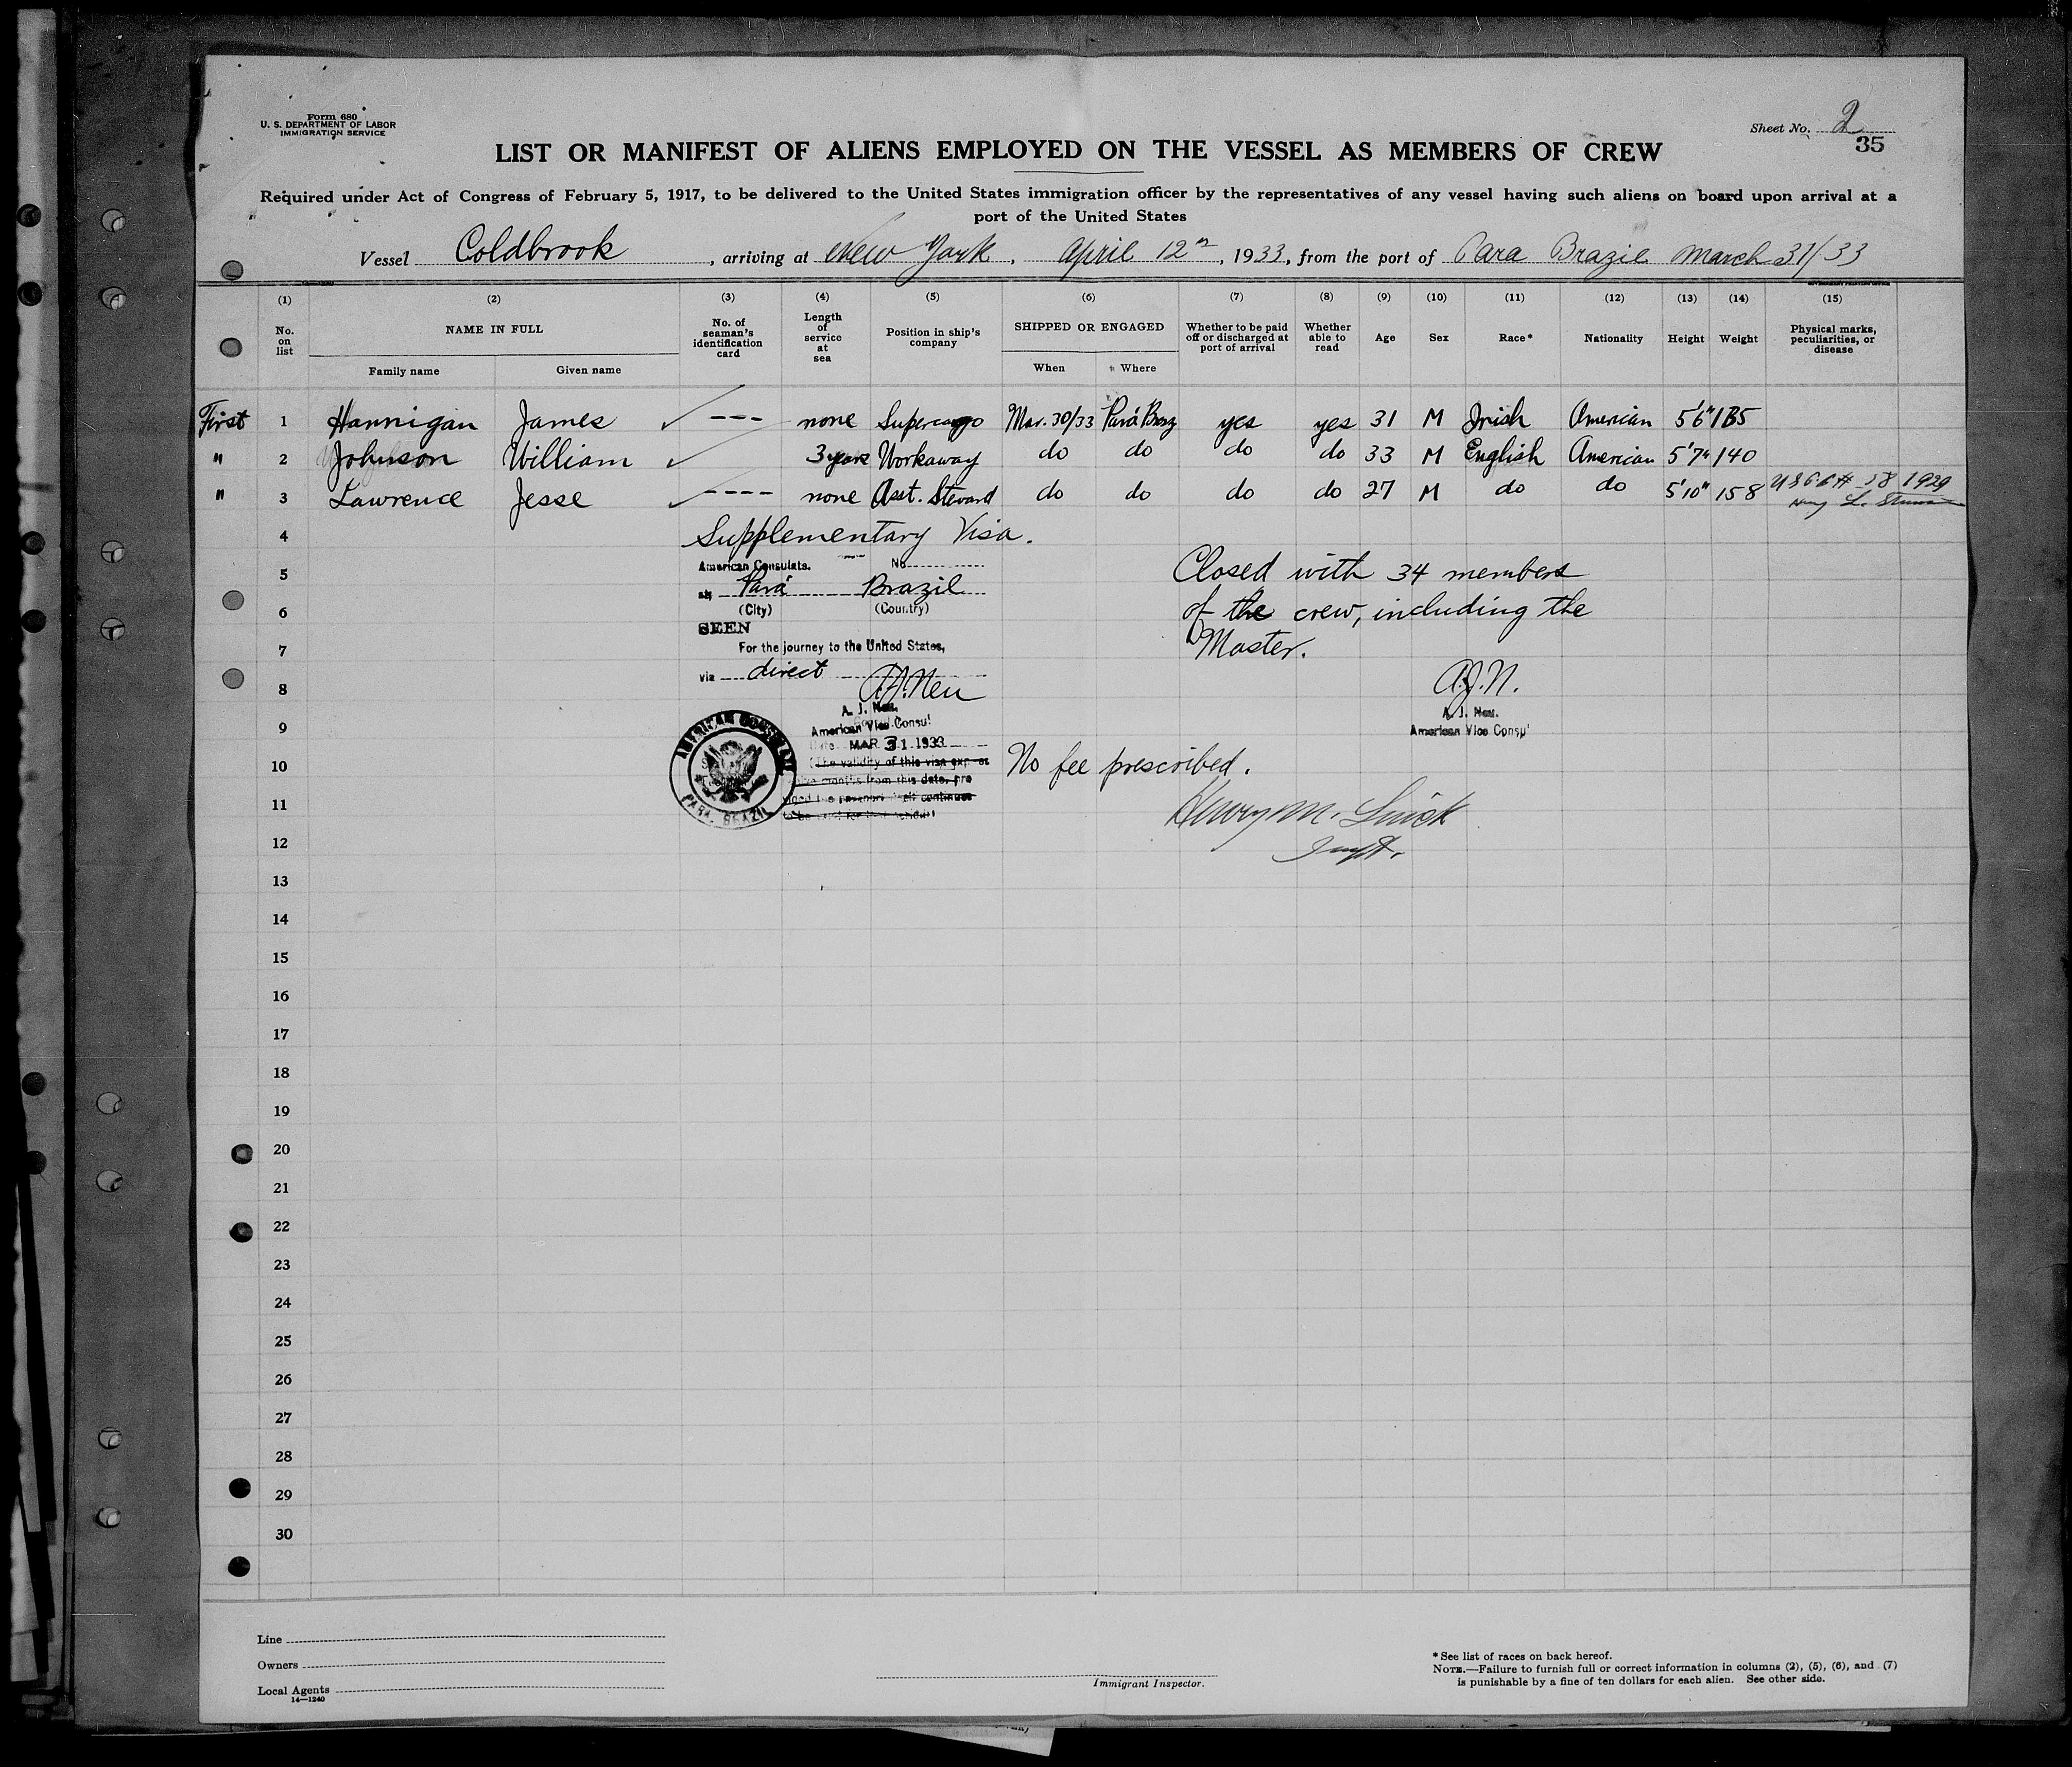 Form 680
U. S. DEPARTMENT OF LABOR
IMMIGRATION SERVICE
Sheet No. 2
35
LIST OR MANIFEST OF ALIENS EMPLOYED ON THE VESSEL AS MEMBERS OF CREW
Required under Act of Congress of February 5, 1917, to be delivered to the United States immigration officer by the representatives of any vessel having such aliens on board upon arrival at a
port of the United States
Vessel Coldbrook, arriving at New York, April 12th, 1933, from the port of Para Brazil March 31/33
(1) (2) (3) (4) (5) (6) (7) (8) (9) (10) (11) (12) (13) (14) (15)
No. on list NAME IN FULL Family name Given name No. of seaman's identification card Length of service at sea Position in ship's company SHIPPED OR ENGAGED When Where Whether to be paid off or discharged at port of arrival Whether able to read Age Sex Race* Nationality Height Weight Physical marks, peculiarities, or disease
First 1 Hannigan James --- none Supercargo Mar. 30/33 Pará Braz yes yes 31 M Irish American 5'6" 135
" 2 Johnson William 3 years Workaway do do do do 33 M English American 5'7" 140
" 3 Lawrence Jesse ---- none Asst. Steward do do do do 27 M do do 5'10" 158 1929
4 Supplementary Visa.
5 American Consulate. No.
at Pará Brazil
(City) (Country)
Closed with 34 members
6 of the crew, including the
SEEN
7 For the journey to the United States,
Master.
via direct
8 A.J. Neu A.J.N.
A. J. Neu. A. J. Neu.
9 American Vice Consul American Vice Consul
Date MAR 31 1933
AMERICAN CONSULATE
PARA, BRAZIL
10 The validity of this visa expires No fee prescribed.
months from this date, pro
11 vided the passport continues
to be valid for that period
Henry M.
12 Inspt.
13
14
15
16
17
18
19
20
21
22
23
24
25
26
27
28
29
30
Line
Owners
Local Agents
14—1240
Immigrant Inspector.
* See list of races on back hereof.
NOTE.—Failure to furnish full or correct information in columns (2), (5), (6), and (7)
is punishable by a fine of ten dollars for each alien. See other side.